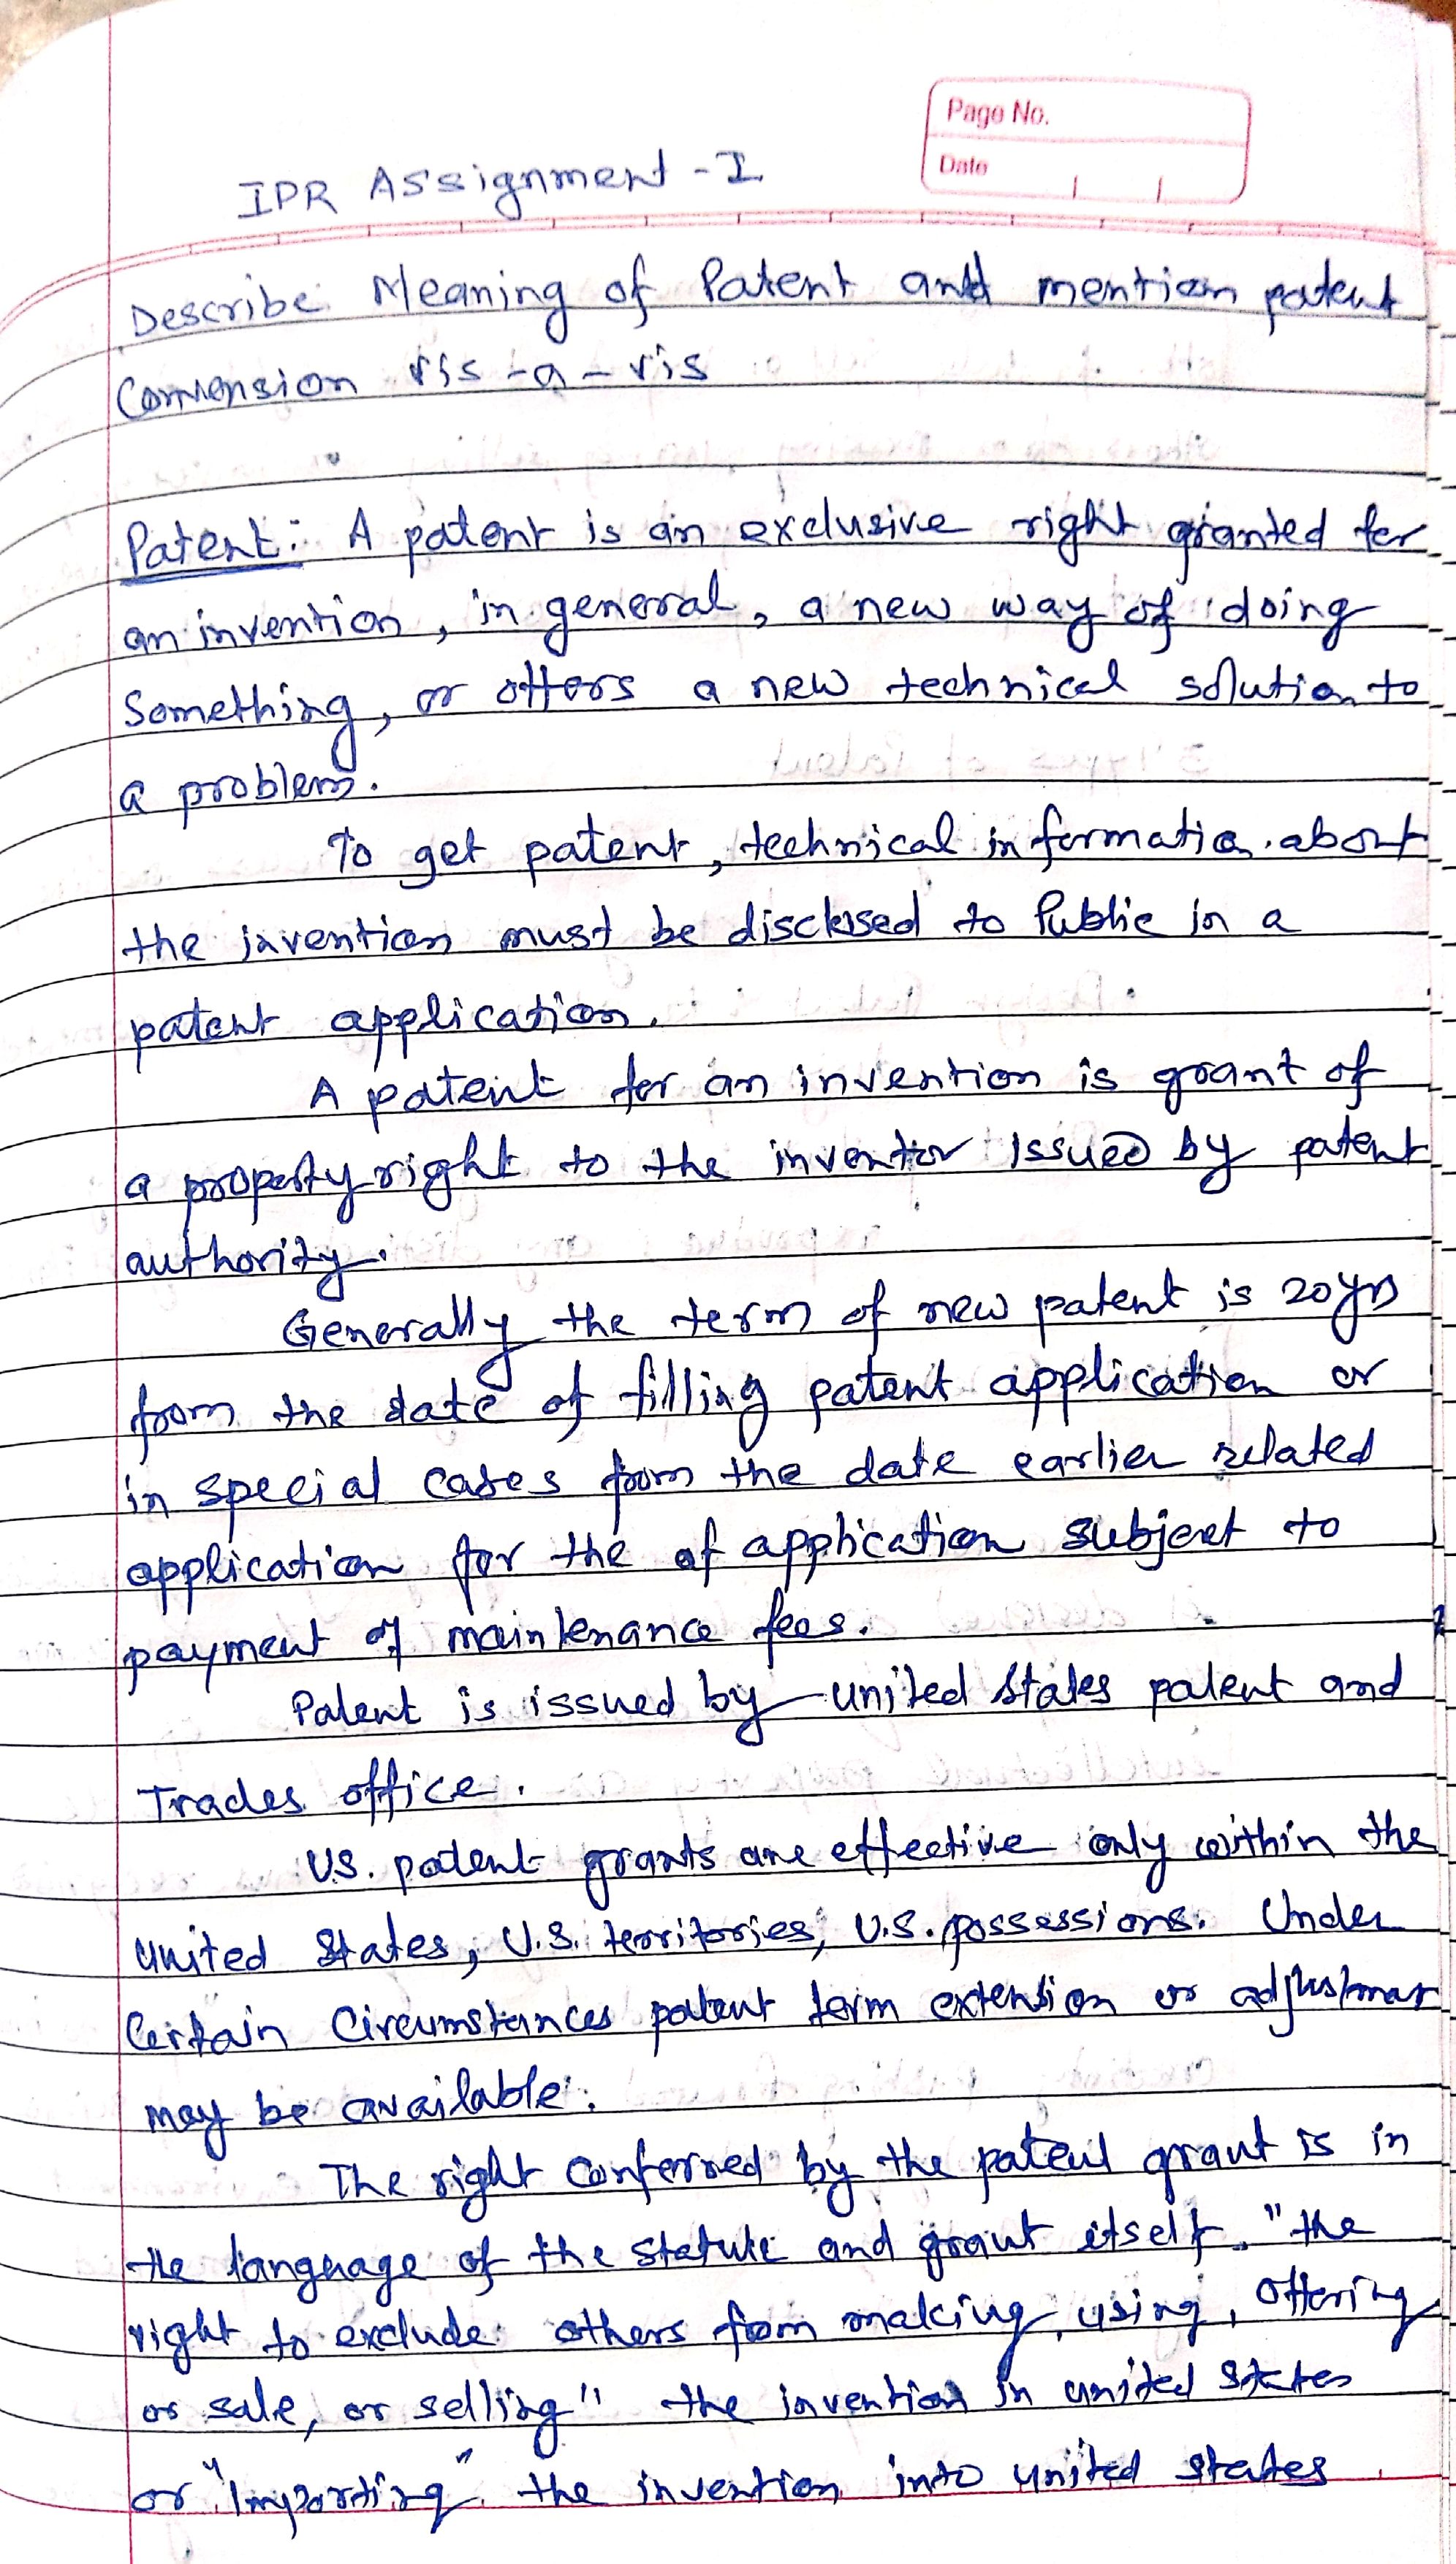 Page No.
Date
IPR Assignment - I
Describe Meaning of Patent and mention patent
Convension vis-a-vis
Patent: A patent is an exclusive right granted for
an invention, in general, a new way of doing
something, or offers a new technical solution to
a problem.
To get patent, technical information about
the invention must be disclosed to Public in a
patent application.
A patent for an invention is grant of
a property right to the inventor issued by patent
authority.
Generally the term of new patent is 20yrs
from the date of filling patent application or
in special cases from the date earlier related
application for the of application subject to
payment of maintenance fees.
Patent is issued by united states patent and
Trades office.
U.S. patent grants are effective only within the
united States, U.S. territories, U.S. possessions. Under
Certain Circumstances patent term extension or
may be available.
The right conferred by the patent grant is in
the language of the statute and grant itself. "the
right to exclude others from making, using, offering
or sale, or selling" the invention in united states
or "Importing" the invention into united states